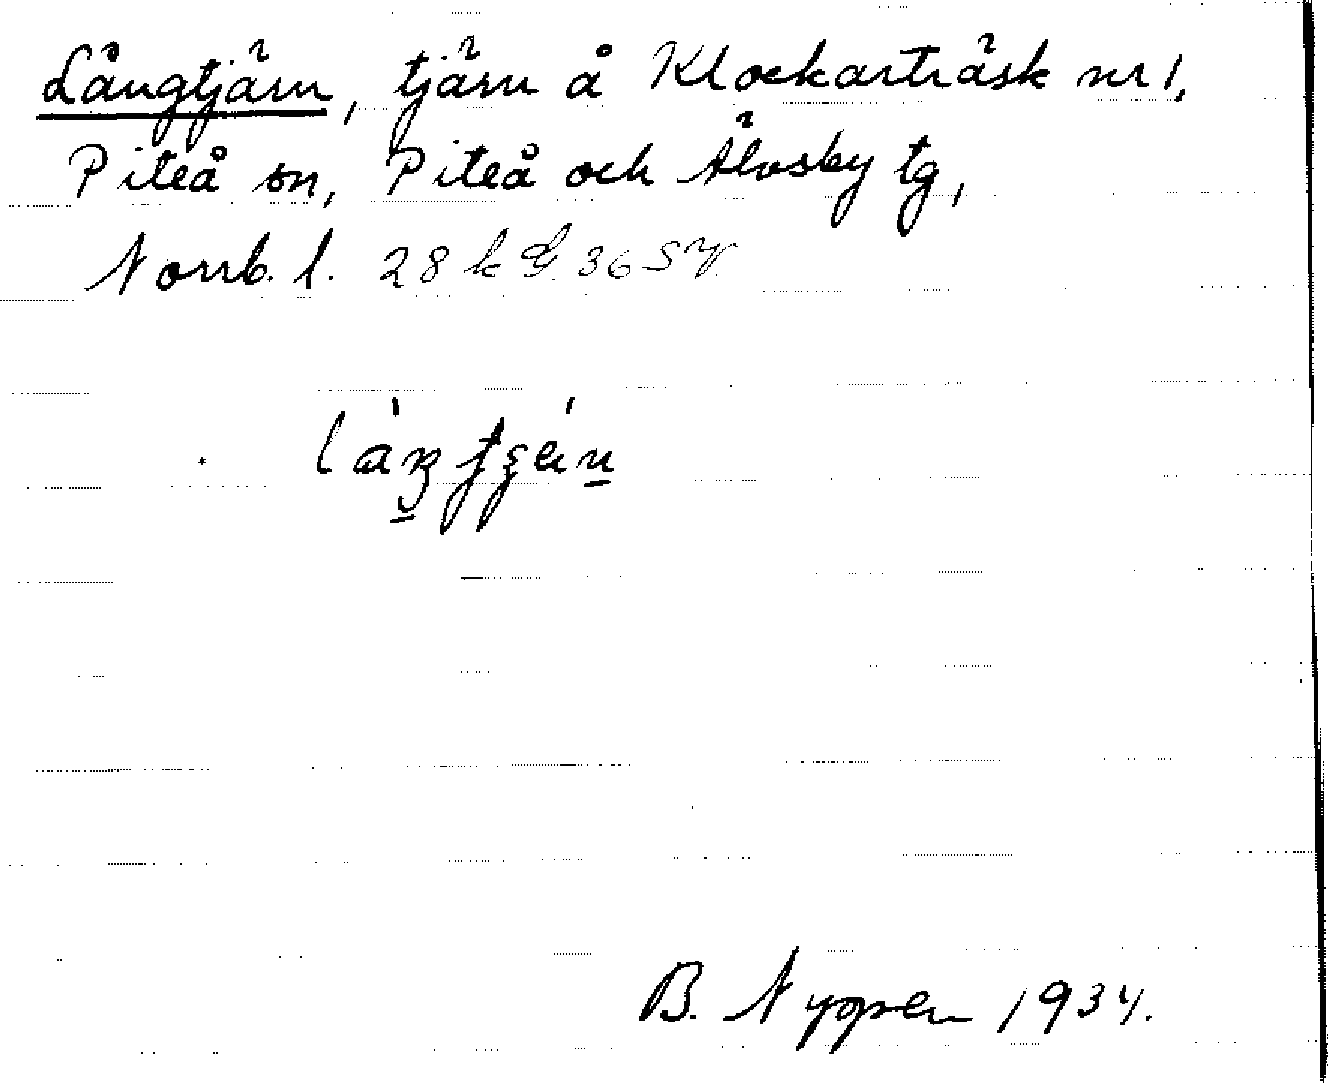 Långtjärn, tjärn å Klockarträsk nr 1,
Piteå sn, Piteå och Älvsby tg,
Norrb. l. 28 k G 36 SV
B. Nygren 1934.